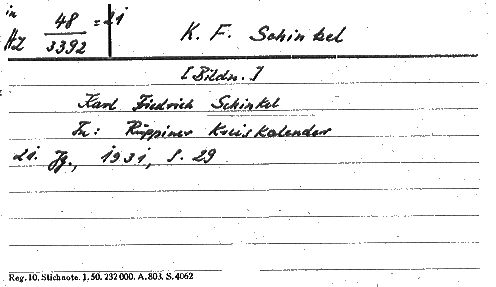 in
HZ 48/3392 = 21
K. F. Schinkel
[Bildn.]
Karl Friedrich Schinkel
In: Ruppiner Kreiskalender
21. Jg., 1931, S. 29
Reg. 10. Stichnote. J. 50. 232 000. A. 803. S. 4062